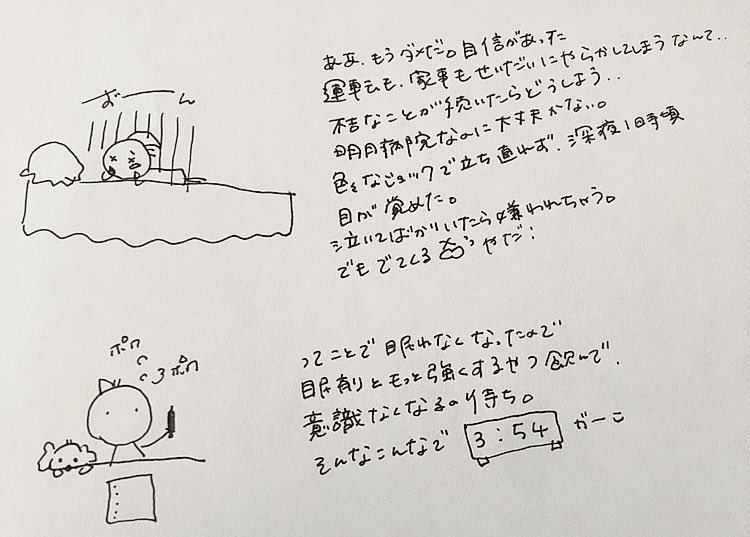 おーん
ああ、もうダメだ。自信があった
運転も、家事もせいだいにやらかしてしまうなんて..
不吉なことが続いたらどうしよう..
明日病院なのに大丈夫かない。
色々なショックで立ち直れず、深夜1時頃
目が覚めた。
泣いてばかりいたら嫌われちゃう。
でもでてくる やだ!
ポワ
ポワ
ってことで眠れなくなったので
眠剤ともっと強くするやつ飲んで、
意識なくなるの待ち。
そんなこんなで 3:54 がーこ